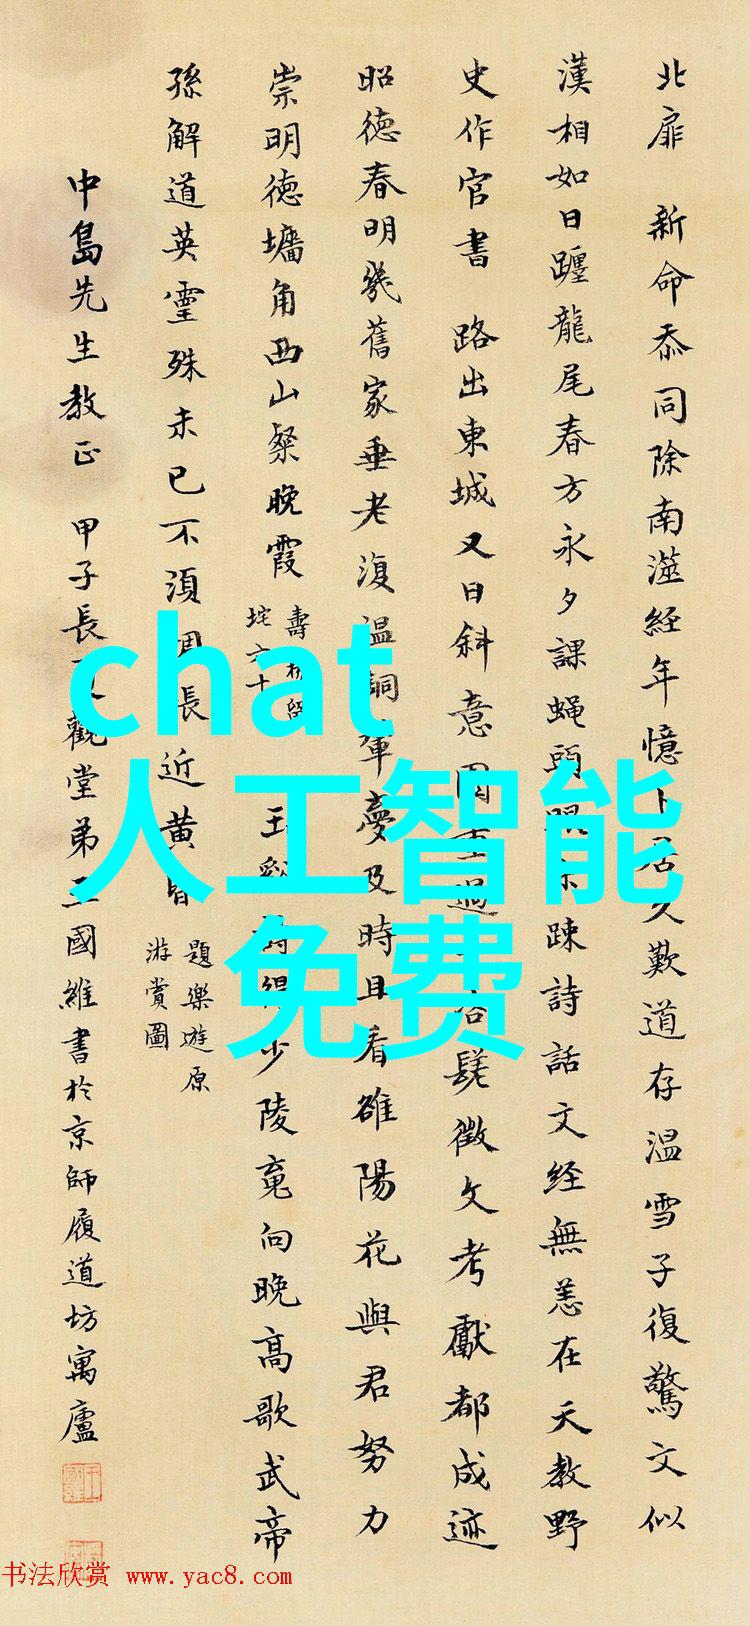 北扉 新命忝同除南漨経年憶卜居久歎道存温雪子復驚文似
漢相如日躔龍尾春方永夕課蝇頭眼未疎詩話文経無恙在天教野
史作官書 路出東城又日斜意園重過 髦徵文考獻都成迹
昭德春明幾舊家垂老復温銅輦夢及時且看雒陽花與君努力
崇明德墉角西山粲晚霞
壽
垞六十
玉谿 少陵竟向晚高歌武帝
孫解道英靈殊未已不須惆長近黄昏
題樂遊原
游賞圖
中島先生教正 甲子長 觀堂弟王國維書於京師履道坊寓廬
chat
人工智能
免费
书法欣赏 www.yac8.com